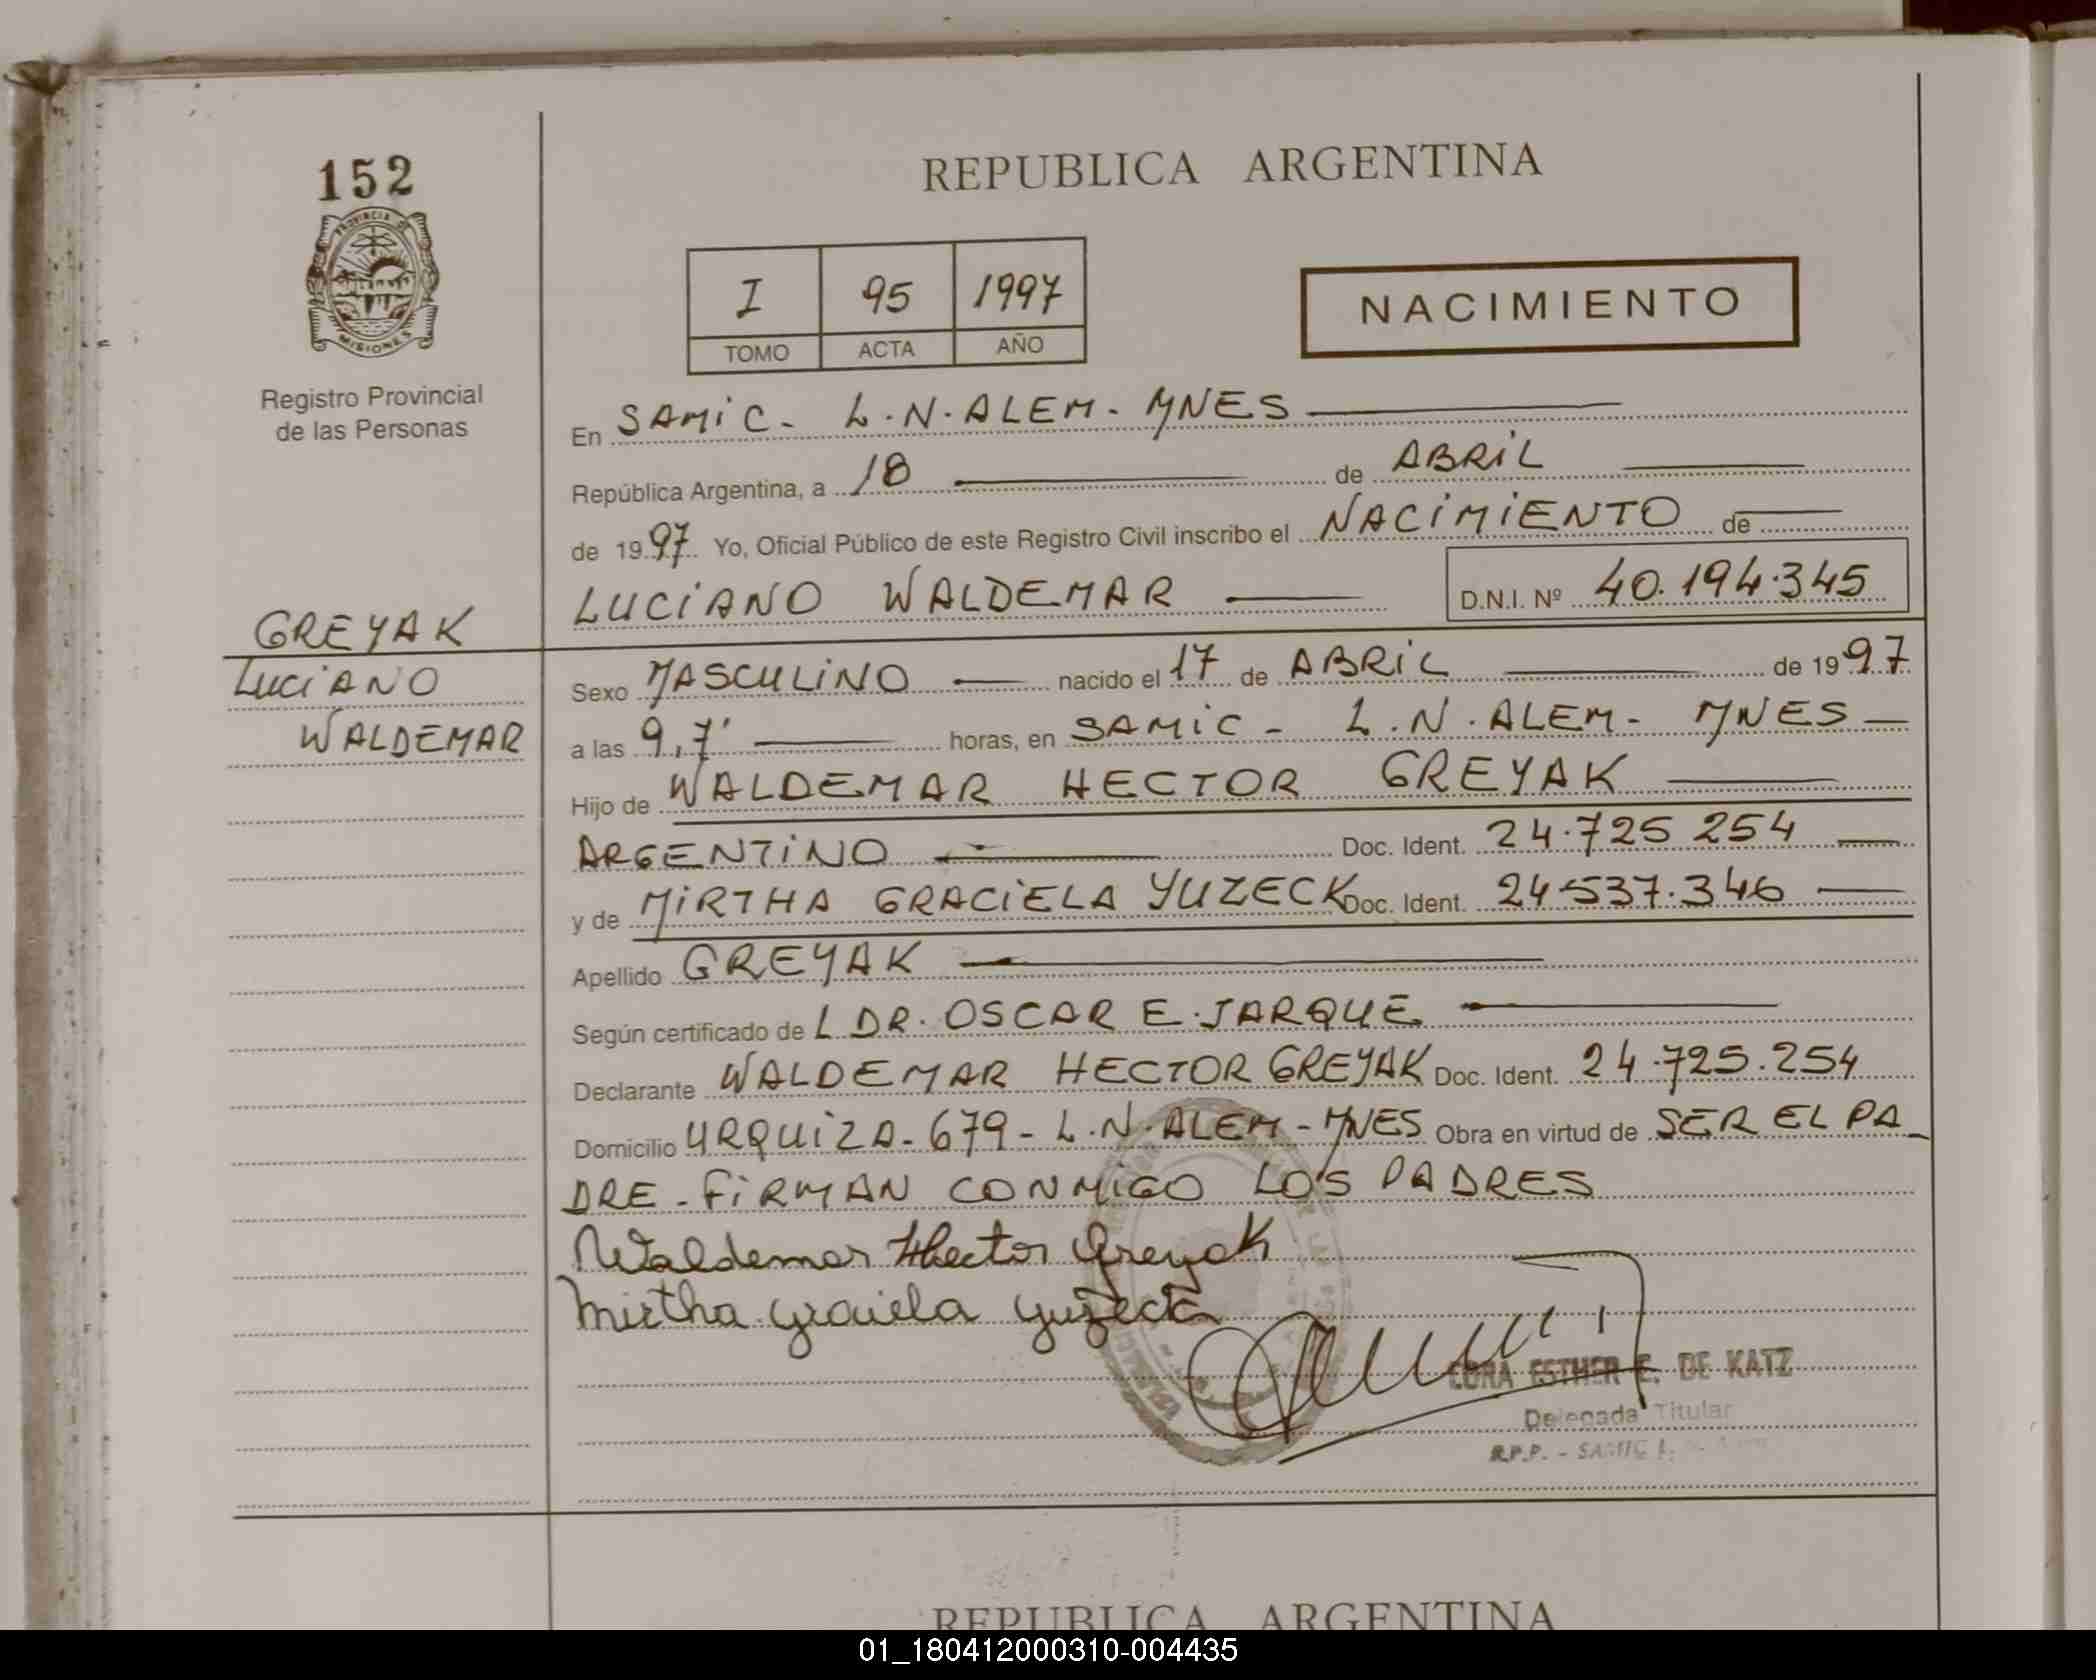 152
PROVINCIA DE
MISIONES
Registro Provincial
de las Personas
GREYAK
LUCIANO
WALDEMAR
REPUBLICA ARGENTINA
I 95 1997
TOMO ACTA AÑO
NACIMIENTO
En SAMIC - L.N.ALEM - MNES
República Argentina, a 18 de ABRIL
de 1997 Yo, Oficial Público de este Registro Civil inscribo el NACIMIENTO de
LUCIANO WALDEMAR D.N.I. Nº 40.194.345
Sexo MASCULINO nacido el 17 de ABRIL de 1997
a las 9,7' horas, en SAMIC - L.N.ALEM - MNES
Hijo de WALDEMAR HECTOR GREYAK
ARGENTINO Doc. Ident. 24.725 254
y de MIRTHA GRACIELA YUZECK Doc. Ident. 24.537.346
Apellido GREYAK
Según certificado de L DR. OSCAR E. JARQUE
Declarante WALDEMAR HECTOR GREYAK Doc. Ident. 24.725.254
Domicilio URQUIZA - 679 - L.N.ALEM - MNES Obra en virtud de SER EL PA_
DRE - FIRMAN CONMIGO LOS PADRES
Waldemar Hector Greyak
Mirtha Graciela Yuzeck
ESTHER E. DE KATZ
Delegada Titular
R.P.P. - SAMIC L.
REPUBLICA ARGENTINA
01_180412000310-004435